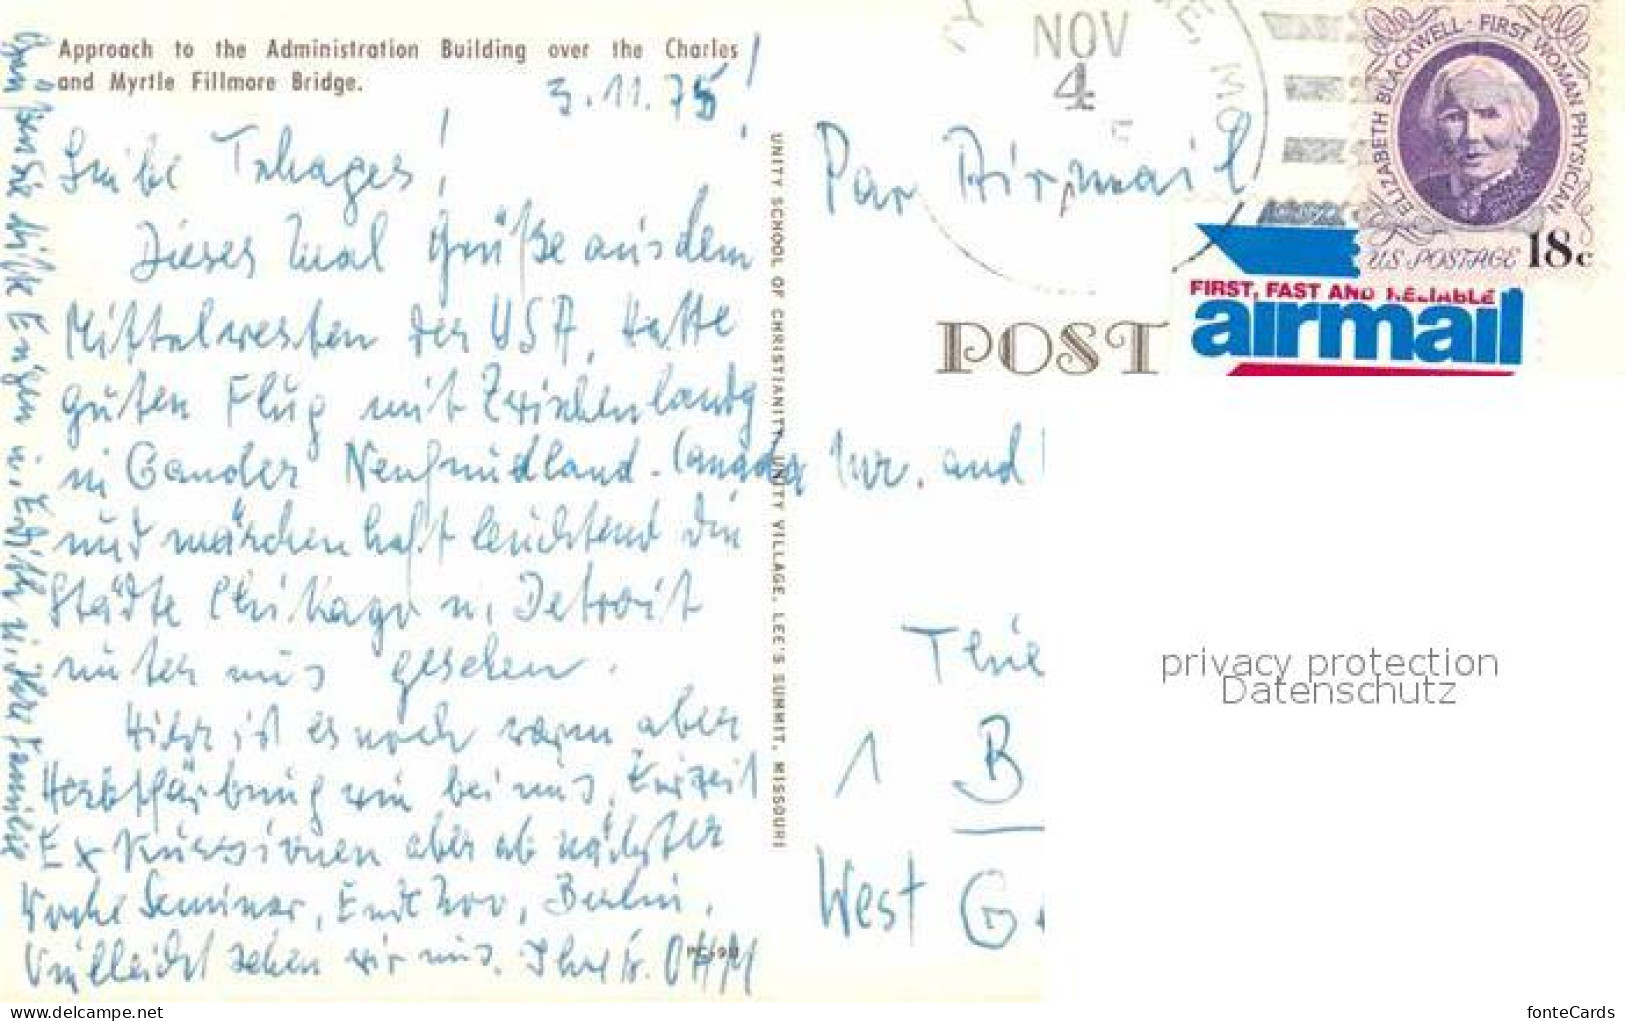 Approach to the Administration Building over the Charles
and Myrtle Fillmore Bridge.
3.11.75!
Liebe Tehages!
Dieses Mal Grüße aus dem
Mittelwesten der USA. Hatte
guten Flug mit Zwischenlandg
in Gander Neufundland - Canada
und märchenhaft leuchtend die
Städte Chikago u. Detroit
unter uns gesehen.
Hier ist es noch warm aber
Herbstfärbung wie bei uns. Zurzeit
Exkursionen aber ab nächster
Woche Seminar, Ende Nov. Berlin.
Vielleicht sehen wir uns. Ihre
UNITY SCHOOL OF CHRISTIANITY, UNITY VILLAGE, LEE'S SUMMIT, MISSOURI
NOV
4
MO
ELIZABETH BLACKWELL · FIRST WOMAN PHYSICIAN
US POSTAGE 18c
Par Airmail
FIRST, FAST AND RELIABLE
airmail
POST
1 B
West G
privacy protection
Datenschutz
www.delcampe.net
fonteCards